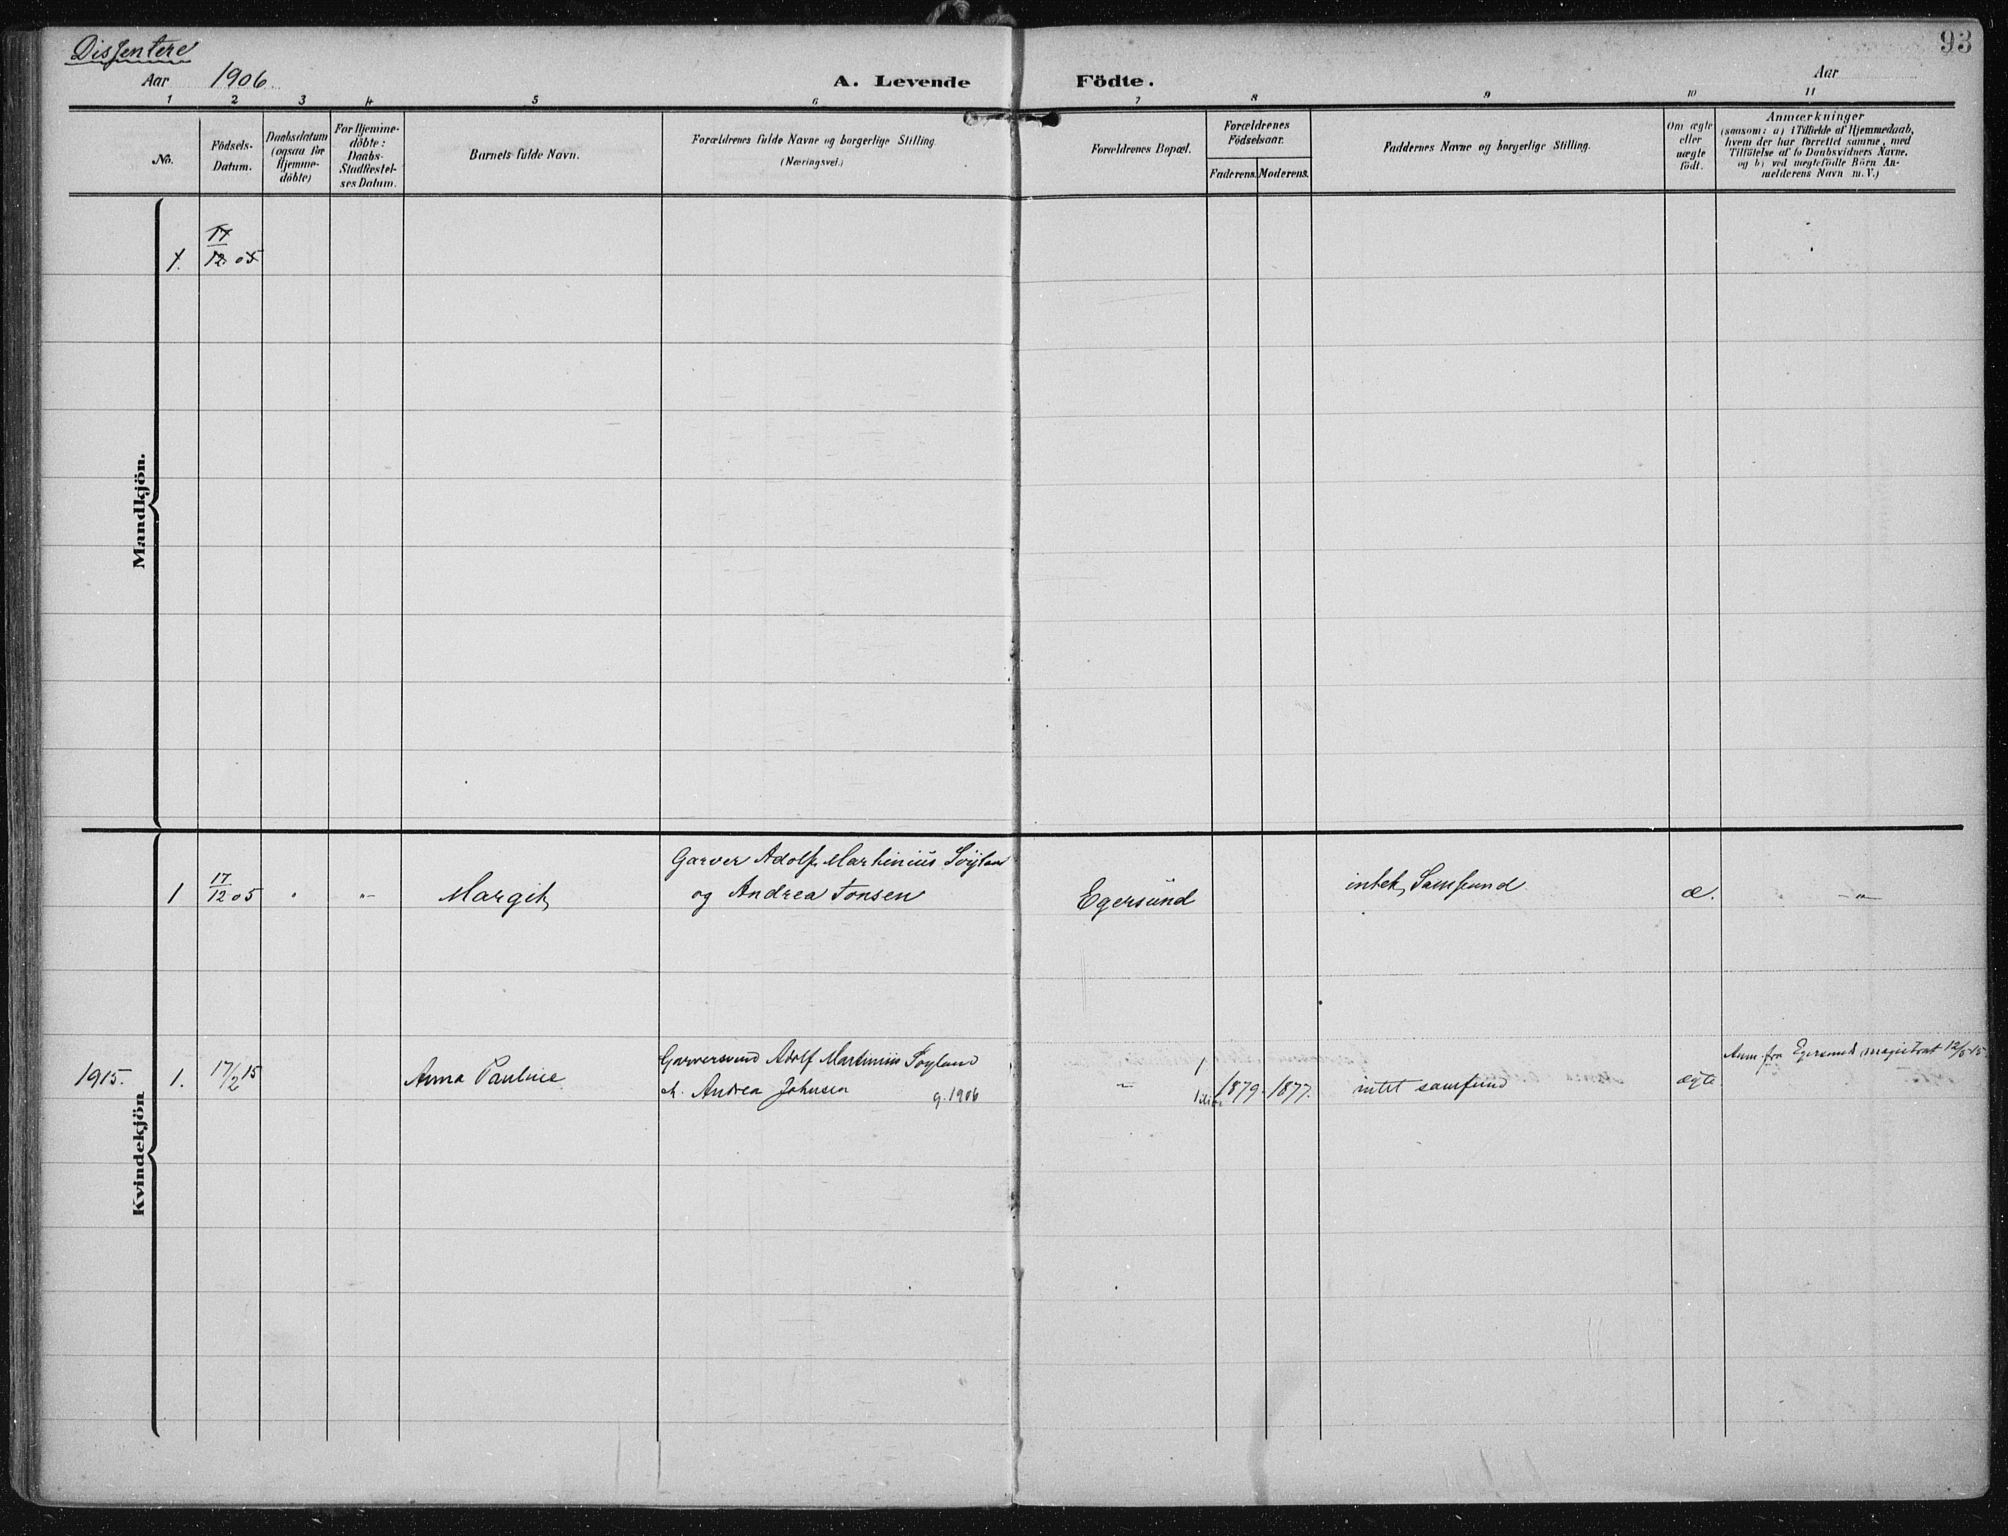 Dissentere
93
Aar 1906
A. Levende Födte.
Aar
1 2 3 4 5 6 7 8 9 10 11
No.
Födsels-
Datum.
Daabsdatum
(ogsaa for
Hjemme-
döbte)
For Hjemme-
döbte:
Daabs-
Stadfæstel-
ses Datum.
Barnets fulde Navn.
Forældrenes fulde Navne og borgerlige Stilling
(Næringsvei.)
Forældrenes Bopæl.
Forældrenes
Födselsaar.
Faderens. Moderens.
Faddernes Navne og borgerlige Stilling.
Om ægte
eller
uægte
födt.
Anmærkninger
(saasom: a) i Tilfælde af Hjemmedaab,
hvem der har forrettet samme, med
Tilföielse af to Daabsvidners Navne.
og b) ved uægtefödte Börn An-
melderens Navn m. V.)
Mandkjön.
1. 17
12 05
Kvindekjön
Garver Adolf Martinius Söyland
1 17 Margit og Andrea Tonsen Egersund intet Samfund æ. -"-
12 05
Garversvend Adolf Martinius Söyland Anm. fra Egersunds magistrat 12/3 15
1915. 1. 17/2 15 Anna Pauline Andrea Johnsen g. 1906 -"- 1879. 1877. intet samfund ægte